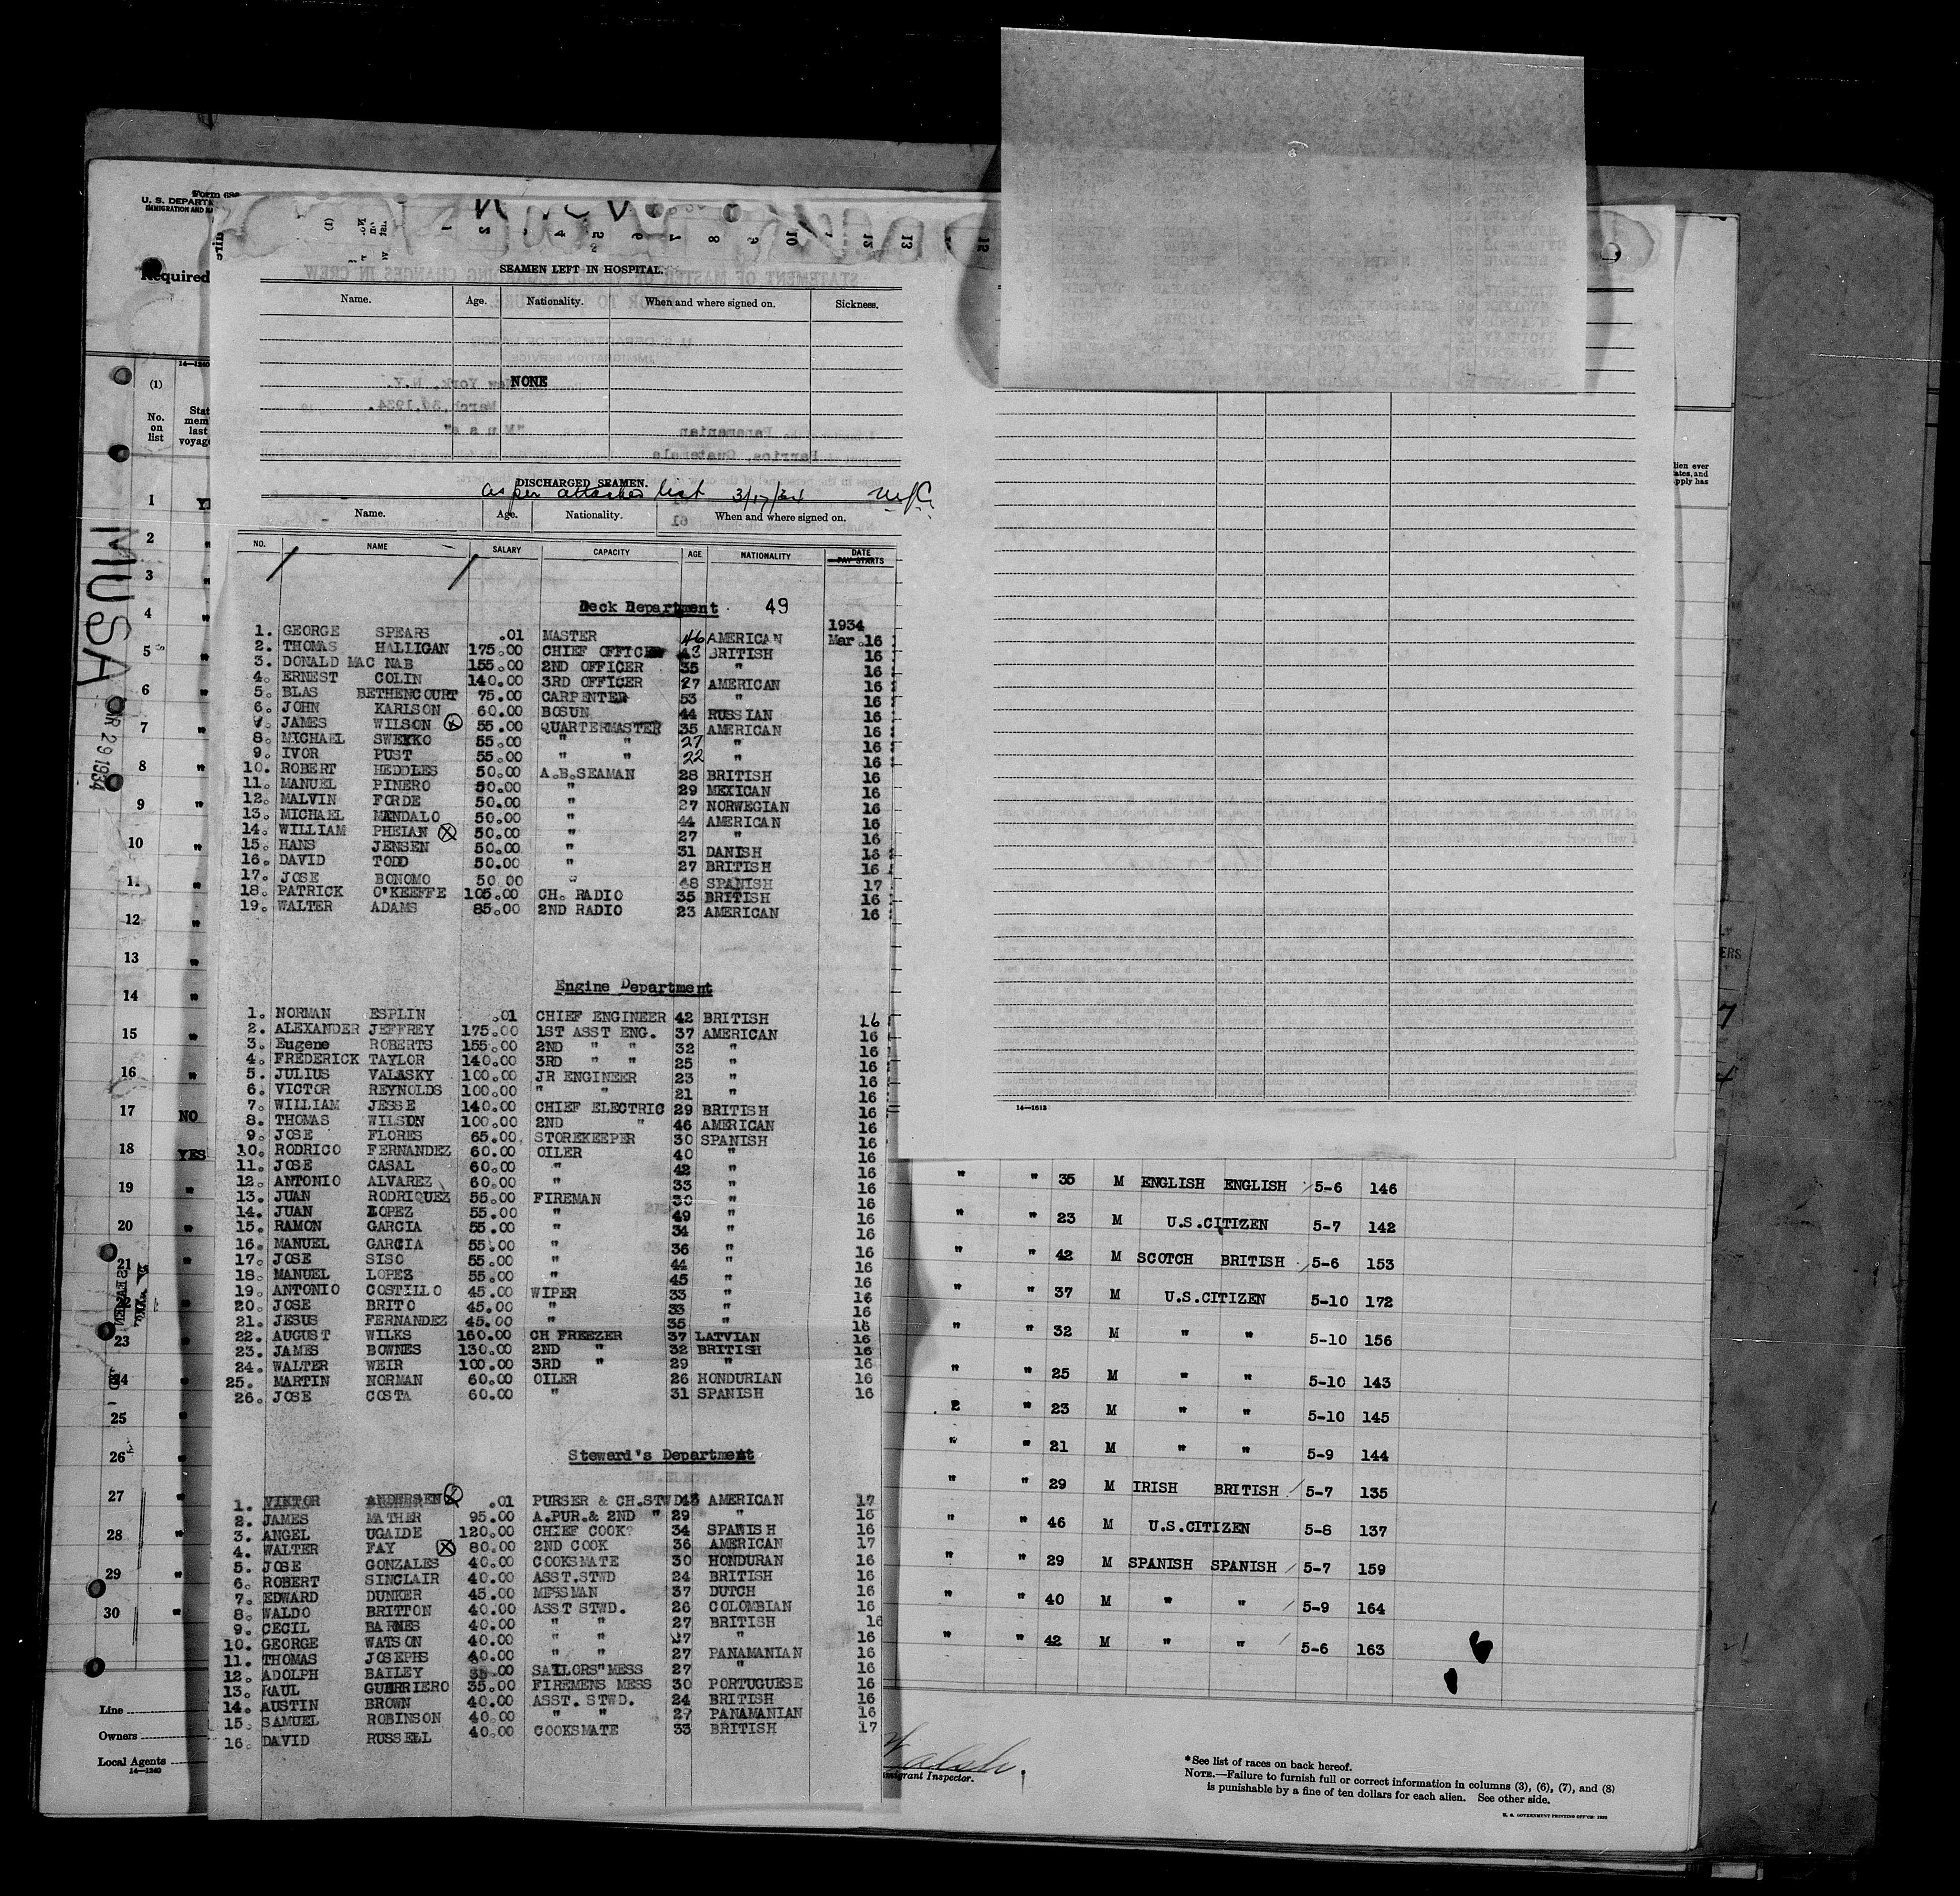 Form 689
U. S. DEPARTM
IMMIGRATION AND
Required
14—1240
(1)
No. on list
MUSA
29 1934
SEAMEN LEFT IN HOSPITAL.
Name. Age. Nationality. When and where signed on. Sickness.
NONE
DISCHARGED SEAMEN.
as per attached list 3/17/34
Name. Age. Nationality. When and where signed on.
NO. NAME SALARY CAPACITY AGE NATIONALITY DATE PAY STARTS
Deck Department 49
1934
1. GEORGE SPEARS .01 MASTER 46 AMERICAN Mar.16
2. THOMAS HALLIGAN 175.00 CHIEF OFFICER 43 BRITISH 16
3. DONALD MAC NAB 155.00 2ND OFFICER 35 " 16
4. ERNEST COLIN 140.00 3RD OFFICER 27 AMERICAN 16
5. BLAS BETHENCOURT 75.00 CARPENTER 53 " 16
6. JOHN KARLSON 60.00 BOSUN 44 RUSSIAN 16
7. JAMES WILSON 55.00 QUARTERMASTER 35 AMERICAN 16
8. MICHAEL SWEKKO 55.00 " " 27 " 16
9. IVOR PUST 55.00 " " 22 " 16
10. ROBERT HEDDLES 50.00 A.B.SEAMAN 28 BRITISH 16
11. MANUEL PINERO 50.00 " 29 MEXICAN 16
12. MALVIN FORDE 50.00 " 27 NORWEGIAN 16
13. MICHAEL MANDALO 50.00 " 44 AMERICAN 16
14. WILLIAM PHELAN 50.00 " 27 " 16
15. HANS JENSEN 50.00 " 31 DANISH 16
16. DAVID TODD 50.00 " 27 BRITISH 16
17. JOSE BONOMO 50.00 " 48 SPANISH 17
18. PATRICK O'KEEFFE 105.00 CH. RADIO 35 BRITISH 16
19. WALTER ADAMS 85.00 2ND RADIO 23 AMERICAN 16
Engine Department
1. NORMAN ESPLIN .01 CHIEF ENGINEER 42 BRITISH 16
2. ALEXANDER JEFFREY 175.00 1ST ASST ENG. 37 AMERICAN 16
3. Eugene ROBERTS 155.00 2ND " " 32 " 16
4. FREDERICK TAYLOR 140.00 3RD " " 25 " 16
5. JULIUS VALASKY 100.00 JR ENGINEER 23 " 16
6. VICTOR REYNOLDS 100.00 " " 21 " 16
7. WILLIAM JESSE 140.00 CHIEF ELECTRIC 29 BRITISH 16
8. THOMAS WILSON 100.00 2ND " 46 AMERICAN 16
9. JOSE FLORES 65.00 STOREKEEPER 30 SPANISH 16
10. RODRICO FERNANDEZ 60.00 OILER 40 " 16
11. JOSE CASAL 60.00 " 42 " 16
12. ANTONIO ALVAREZ 60.00 " 33 " 16
13. JUAN RODRIQUEZ 55.00 FIREMAN 30 " 16
14. JUAN LOPEZ 55.00 " 49 " 16
15. RAMON GARCIA 55.00 " 34 " 16
16. MANUEL GARCIA 55.00 " 36 " 16
17. JOSE SISO 55.00 " 44 " 16
18. MANUEL LOPEZ 55.00 " 45 " 16
19. ANTONIO COSTILLO 45.00 WIPER 33 " 16
20. JOSE BRITO 45.00 " 33 " 16
21. JESUS FERNANDEZ 45.00 " 35 " 16
22. AUGUST WILKS 160.00 CH FREEZER 37 LATVIAN 16
23. JAMES BOWNES 130.00 2ND " 32 BRITISH 16
24. WALTER WEIR 100.00 3RD " 29 " 16
25. MARTIN NORMAN 60.00 OILER 26 HONDURIAN 16
26. JOSE COSTA 60.00 " 31 SPANISH 16
Steward's Department
1. VIKTOR ANDERSEN .01 PURSER & CH.STWD 43 AMERICAN 17
2. JAMES MATHER 95.00 A.PUR.& 2ND " 29 " 16
3. ANGEL UGAIDE 120.00 CHIEF COOK 34 SPANISH 16
4. WALTER FAY 80.00 2ND COOK 36 AMERICAN 17
5. JOSE GONZALES 40.00 COOKSMATE 30 HONDURAN 16
6. ROBERT SINCLAIR 40.00 ASST.STWD 24 BRITISH 16
7. EDWARD DUNKER 45.00 MESSMAN 37 DUTCH 16
8. WALDO BRITTON 40.00 ASST STWD. 26 COLOMBIAN 16
9. CECIL BARNES 40.00 " " 27 BRITISH 16
10. GEORGE WATSON 40.00 " " 27 " 16
11. THOMAS JOSEPHS 40.00 " " 27 PANAMANIAN 16
12. ADOLPH BAILEY 35.00 SAILORS"MESS 27 " 16
13. RAUL GUERRIERO 35.00 FIREMENS MESS 30 PORTUGUESE 16
14. AUSTIN BROWN 40.00 ASST. STWD. 24 BRITISH 16
15. SAMUEL ROBINSON 40.00 " " 27 PANAMANIAN 16
16. DAVID RUSSELL 40.00 COOKSMATE 33 BRITISH 17
14—1613
" " 35 M ENGLISH ENGLISH 5-6 146
" " 23 M U.S.CITIZEN 5-7 142
" " 42 M SCOTCH BRITISH 5-6 153
" " 37 M U.S.CITIZEN 5-10 172
" " 32 M " " 5-10 156
" " 25 M " " 5-10 143
2 " 23 M " " 5-10 145
" " 21 M " " 5-9 144
" " 29 M IRISH BRITISH 5-7 135
" " 46 M U.S.CITIZEN 5-8 137
" " 29 M SPANISH SPANISH 5-7 159
" " 40 M " " 5-9 164
" " 42 M " " 5-6 163
Line
Owners
Local Agents
14—1240
Walsh.
migrant Inspector.
*See list of races on back hereof.
NOTE.—Failure to furnish full or correct information in columns (3), (6), (7), and (8)
is punishable by a fine of ten dollars for each alien. See other side.
U. S. GOVERNMENT PRINTING OFFICE